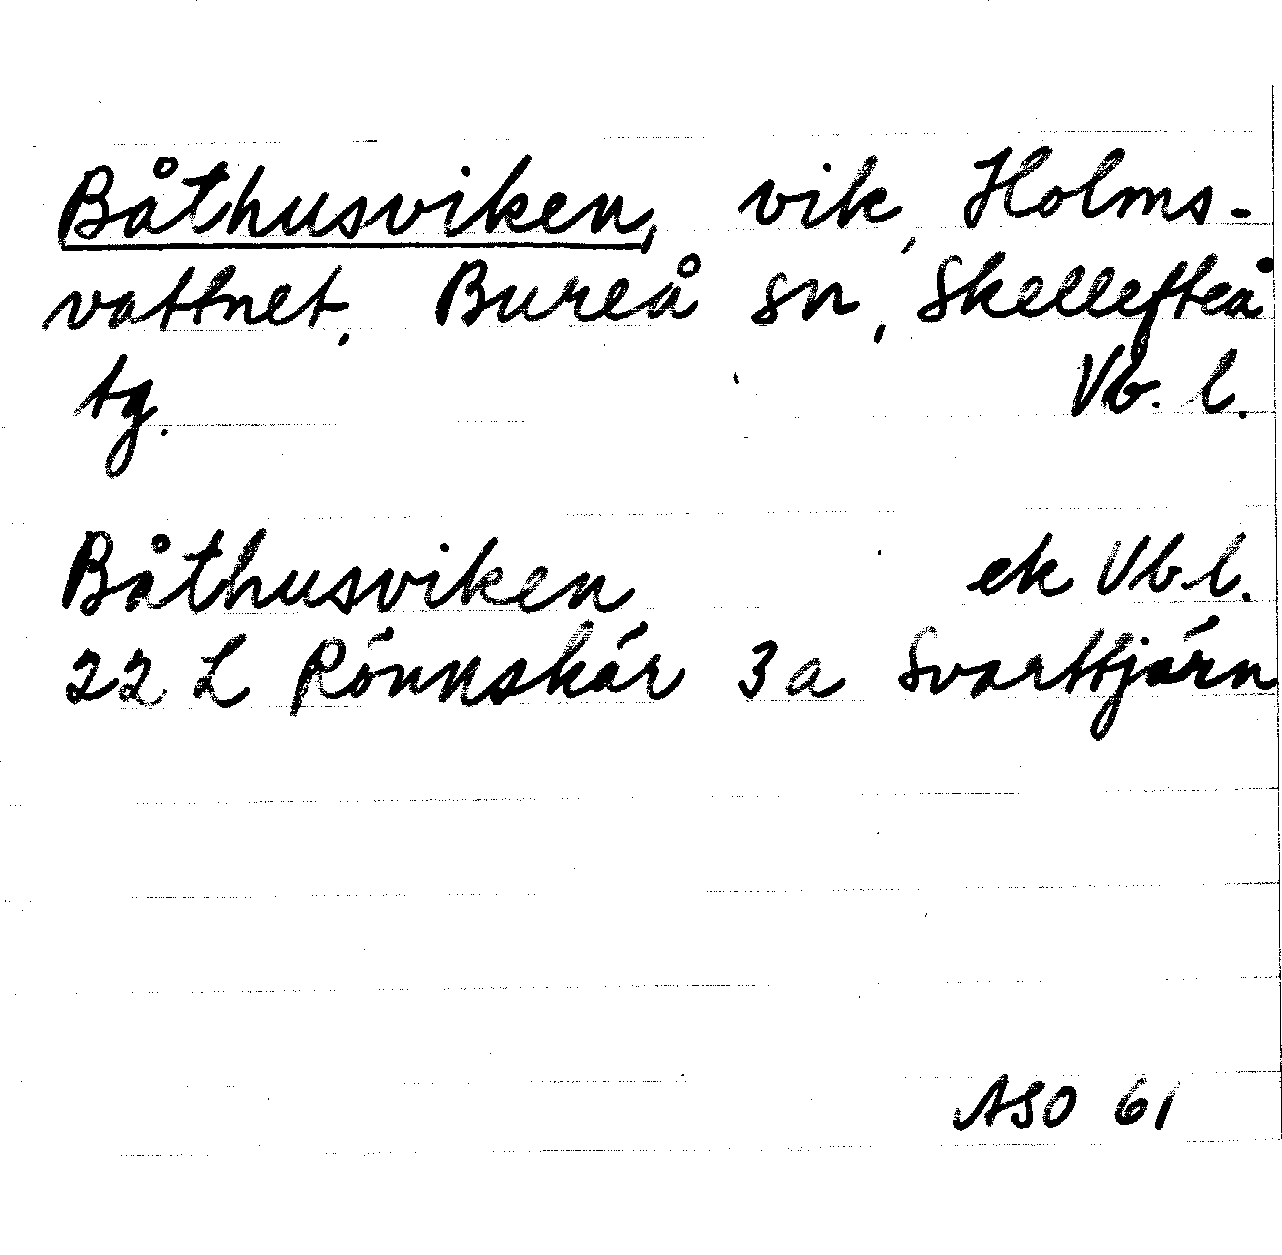 Båthusviken, vik, Holms-
vattnet, Bureå sn, Skellefteå
tg. Vb. l.
Båthusviken ek Vb.l.
22 L Rönnskär 3a Svarttjärn
ASO 61